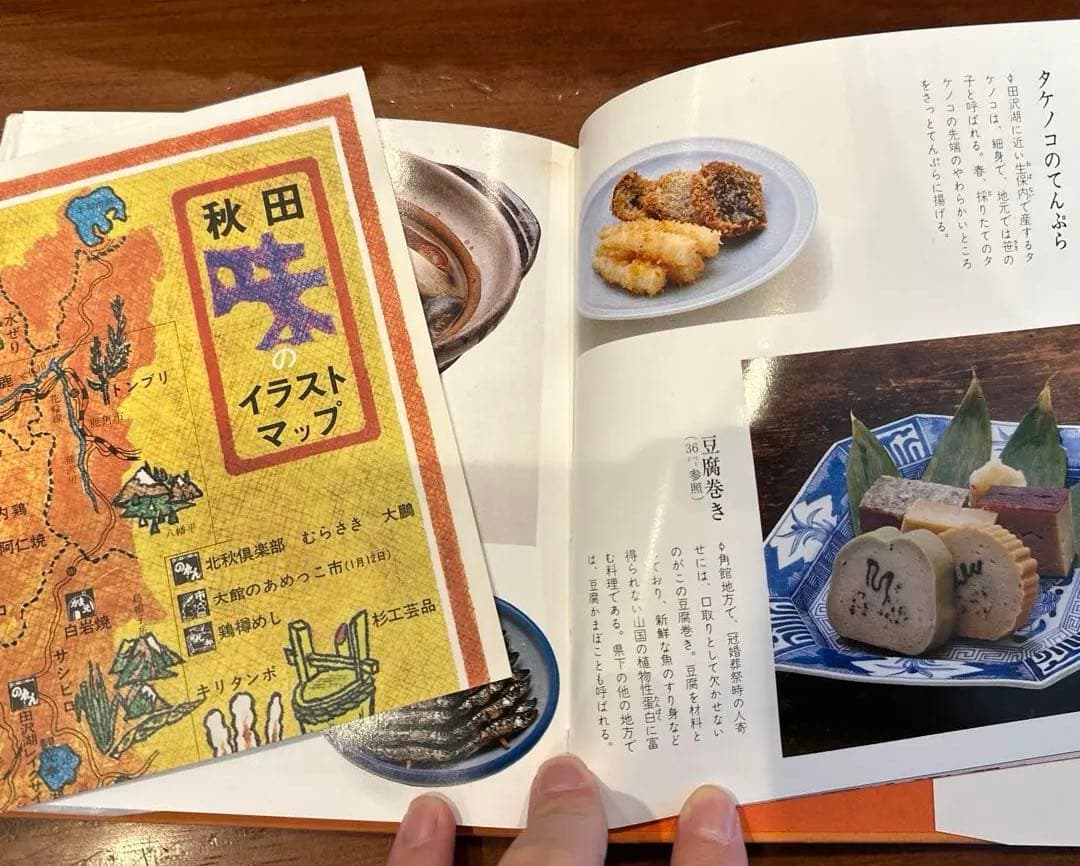 秋田
味
の
イラスト
マップ
水ぜり
鹿
トンブリ
鹿角市
八幡平
内鶏
阿仁焼
白岩焼
サシビロ
田沢湖
北秋倶楽部　むらさき　大鵬
大館のあめっこ市(1月12日)
鶏樽めし
杉工芸品
キリタンポ
タケノコのてんぷら
田沢湖に近い生保内で産するタ
ケノコは、細身で、地元では笹の
子と呼ばれる。春、採りたてのタ
ケノコの先端のやわらかいところ
をさっとてんぷらに揚げる。
豆腐巻き
(36ページ参照)
角館地方で、冠婚葬祭時の人寄
せには、口取りとして欠かせない
のがこの豆腐巻き。豆腐を材料と
しており、新鮮な魚のすり身など
得られない山国の植物性蛋白に富
む料理である。県下の他の地方で
は、豆腐かまぼことも呼ばれる。